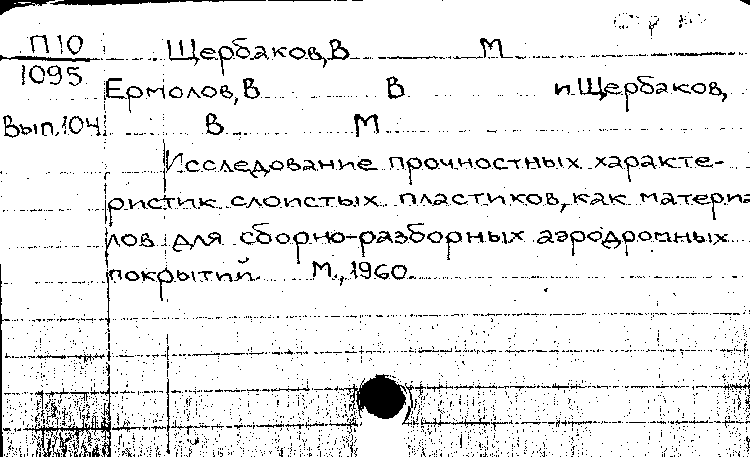 П 10 Щербаков, В М
1095
Ермолов, В В и Щербаков,
Вып. 104 В М
Исследование прочностных характе-
ристик слоистых пластиков, как материа
лов для сборно-разборных аэродромных
покрытий. М., 1960.